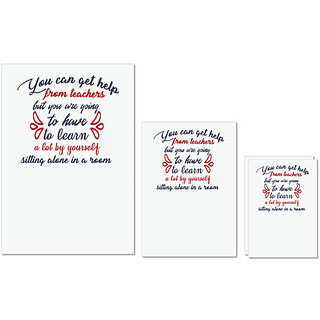 You can get help
from teachers
but you are going
to have
to learn
a lot by yourself
sitting alone in a room
You can get help
from teachers
but you are going
to have
to learn
a lot by yourself
sitting alone in a room
You can get help
from teachers
but you are going
to have
to learn
a lot by yourself
sitting alone in a room